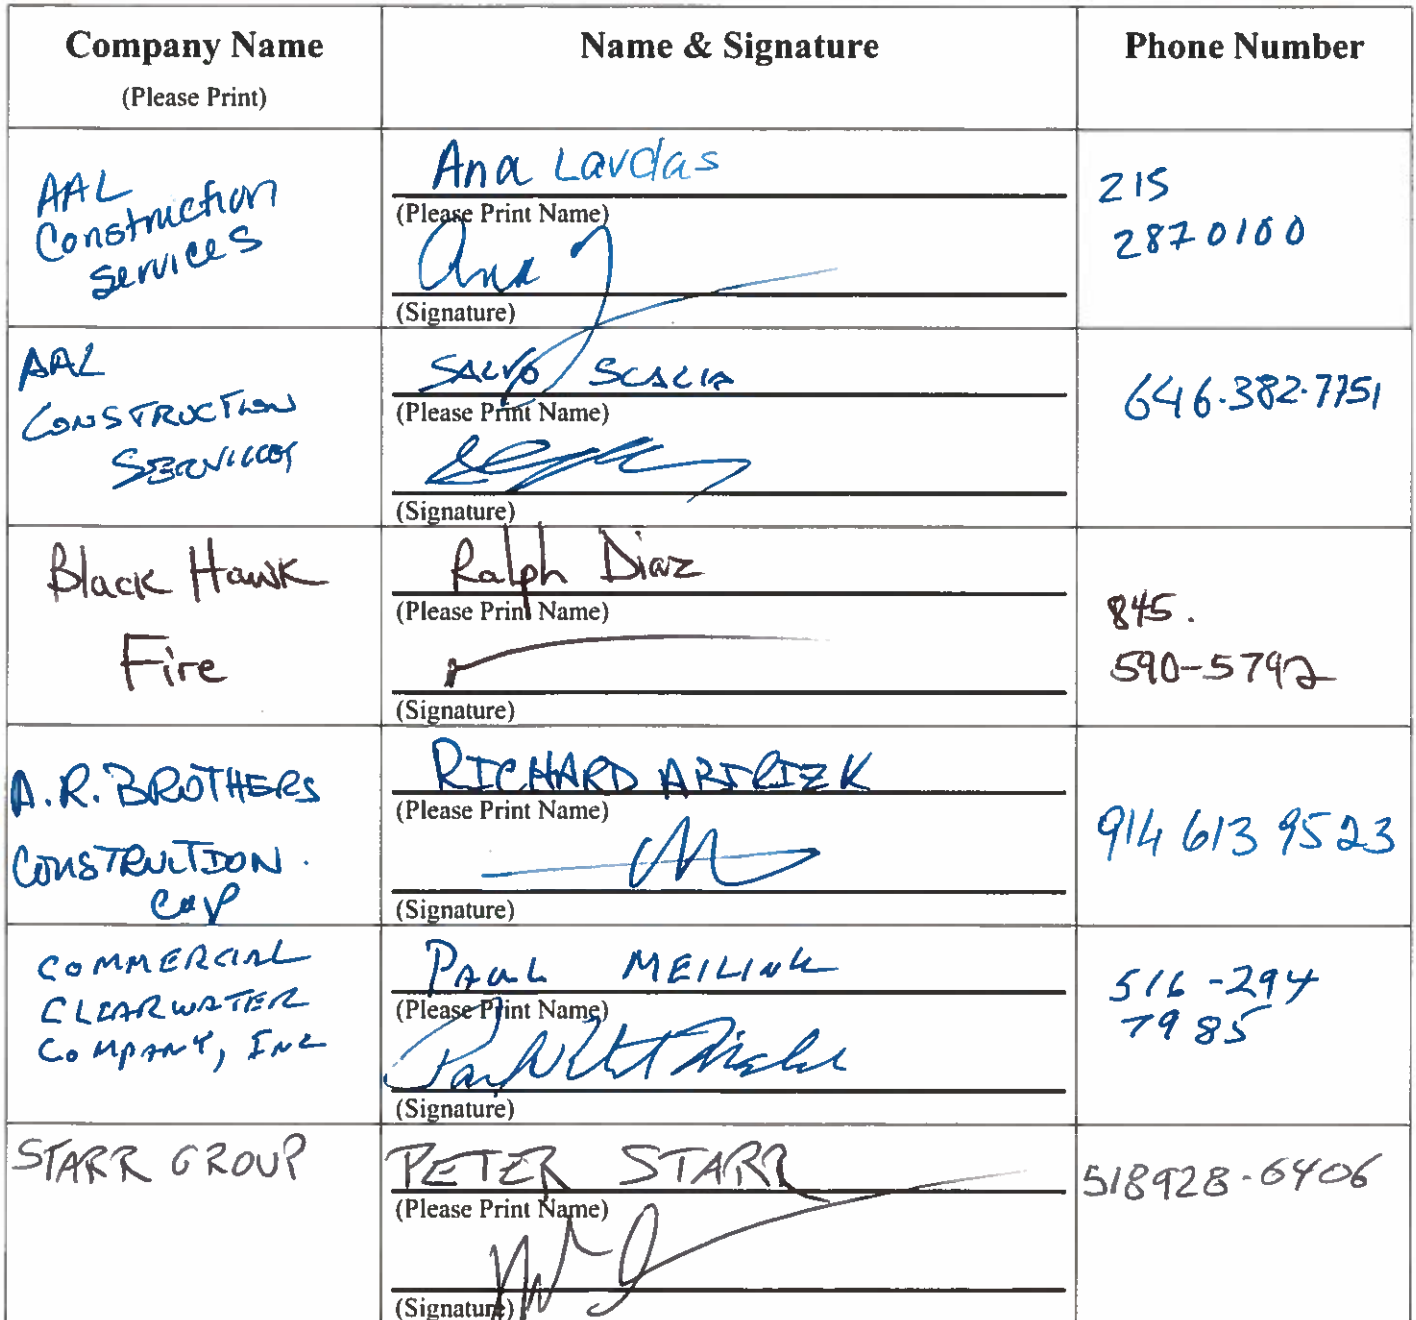 Company Name
(Please Print)
Name & Signature
Phone Number
AAL
Construction
Services
Ana Lavdas
(Please Print Name)
Ana
(Signature)
215
2870100
AAL
CONSTRUCTION
SERVICES
SALVO SCALIA
(Please Print Name)
(Signature)
646.382.7751
Black Hawk
Fire
Ralph Diaz
(Please Print Name)
(Signature)
845.
590-5792
A.R. BROTHERS
CONSTRUCTION.
RICHARD ABIRIZK
(Please Print Name)
(Signature)
914 613 9523
COMMERCIAL
CLEARWATER
COMPANY, INC
PAUL MEILINK
(Please Print Name)
(Signature)
516-294
7985
STARR GROUP
PETER STARR
(Please Print Name)
(Signature)
518928-6406